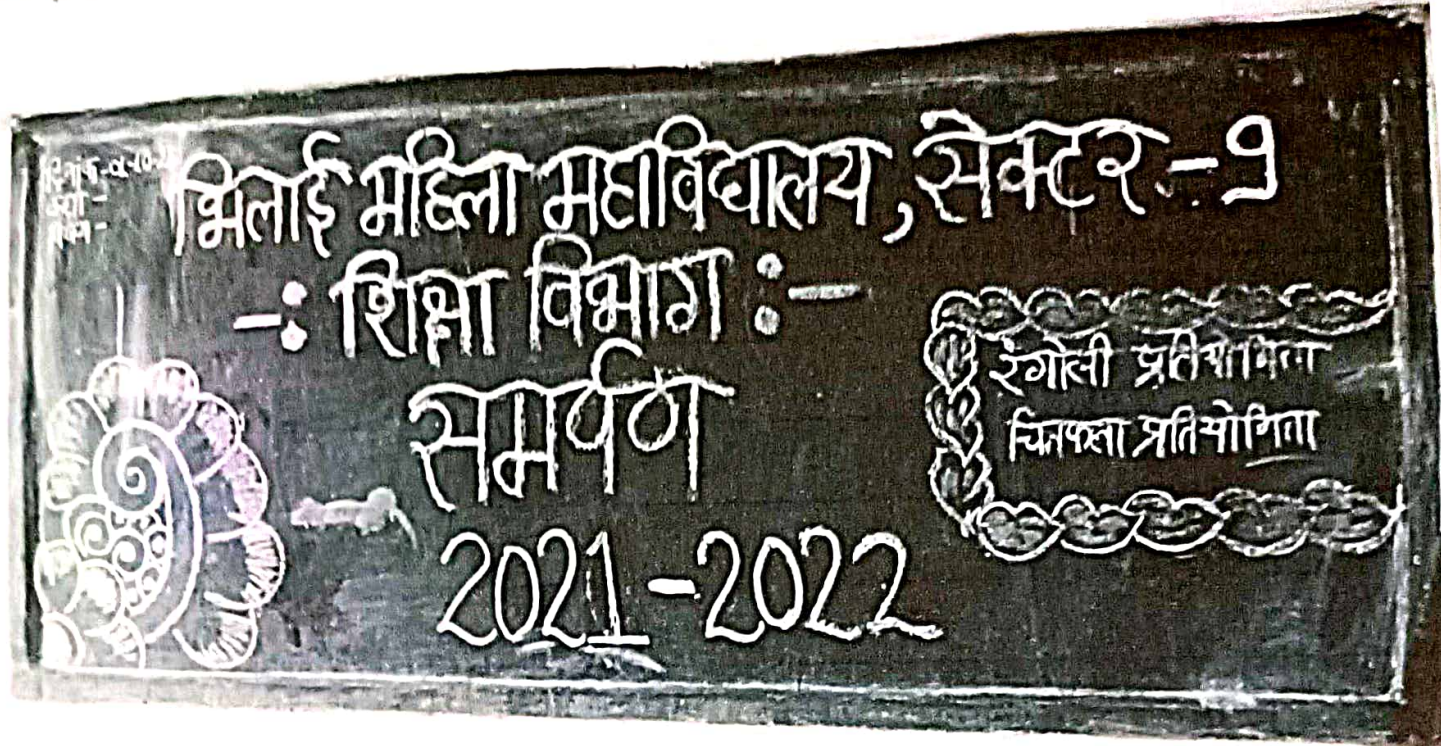 भिलाई महिला महाविद्यालय, सेक्टर-9
-: शिक्षा विभाग :-
समर्पण
2021-2022
रंगोली प्रतियोगिता
चित्रकला प्रतियोगिता